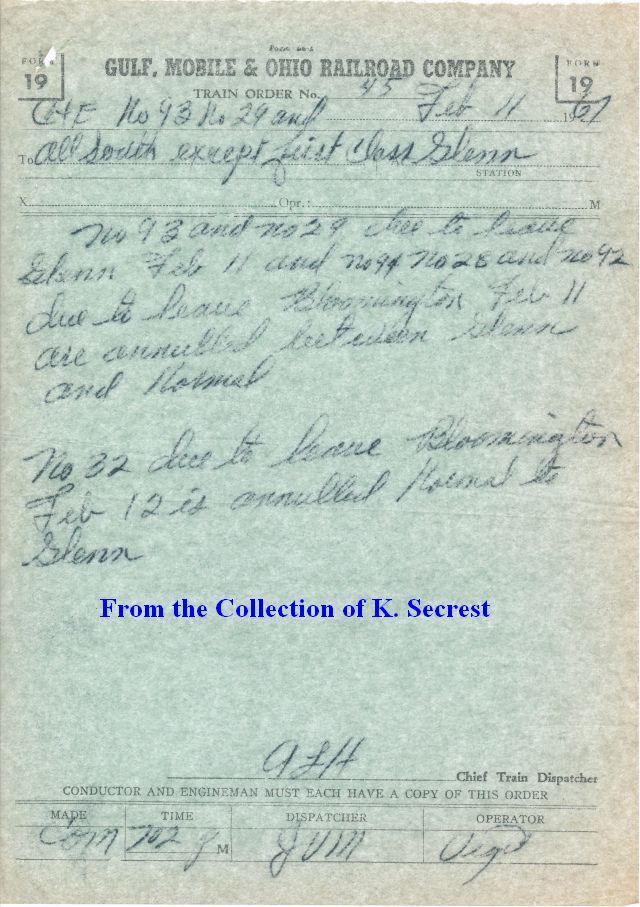 FORM 19
FORM 19
GULF, MOBILE & OHIO RAILROAD COMPANY
TRAIN ORDER No. 45 Feb 11 1967
C&E No 93 No 29 and
To all South except first Class At Glenn
STATION
X Opr.: M
No 93 and no 29 due to leave
Glenn Feb 11 and no 94 no 28 and no 92
due to leave Bloomington Feb 11
are annulled between Glenn
and Normal
No 32 due to leave Bloomington
Feb 12 is annulled Normal to
Glenn
From the Collection of K. Secrest
ALH
Chief Train Dispatcher
CONDUCTOR AND ENGINEMAN MUST EACH HAVE A COPY OF THIS ORDER
MADE TIME DISPATCHER OPERATOR
Com 702 M JVM